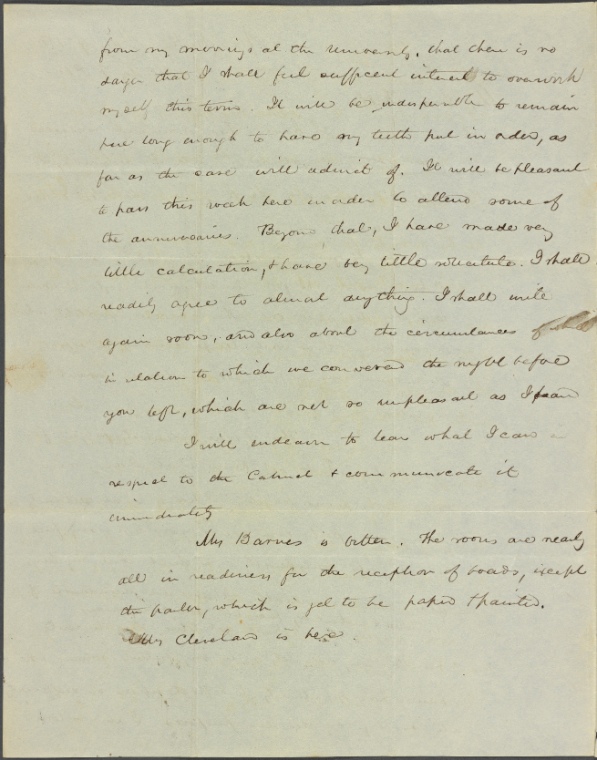 from my moorings at the university, that there is no
danger that I shall feel sufficient interest to overwork
myself this term. It will be indispensable to remain
here long enough to have my teeth put in order, as
far as the case will admit of. It will be pleasant
to pass this week here in order to attend some of
the anniversaries. Beyond that, I have made very
little calculation, & have very little solicitude. I shall
readily agree to almost anything. I shall write
again soon, and also about the circumstances of
in relation to which we conversed the night before
you left, which are not so unpleasant as I
I will endeavor to learn what I can
respect to the Cabinet & communicate it
immediately
Mrs Barnes is better. The rooms are nearly
all in readiness for the reception of boards, except
the parlor, which is yet to be papered & painted.
Cleveland is here.